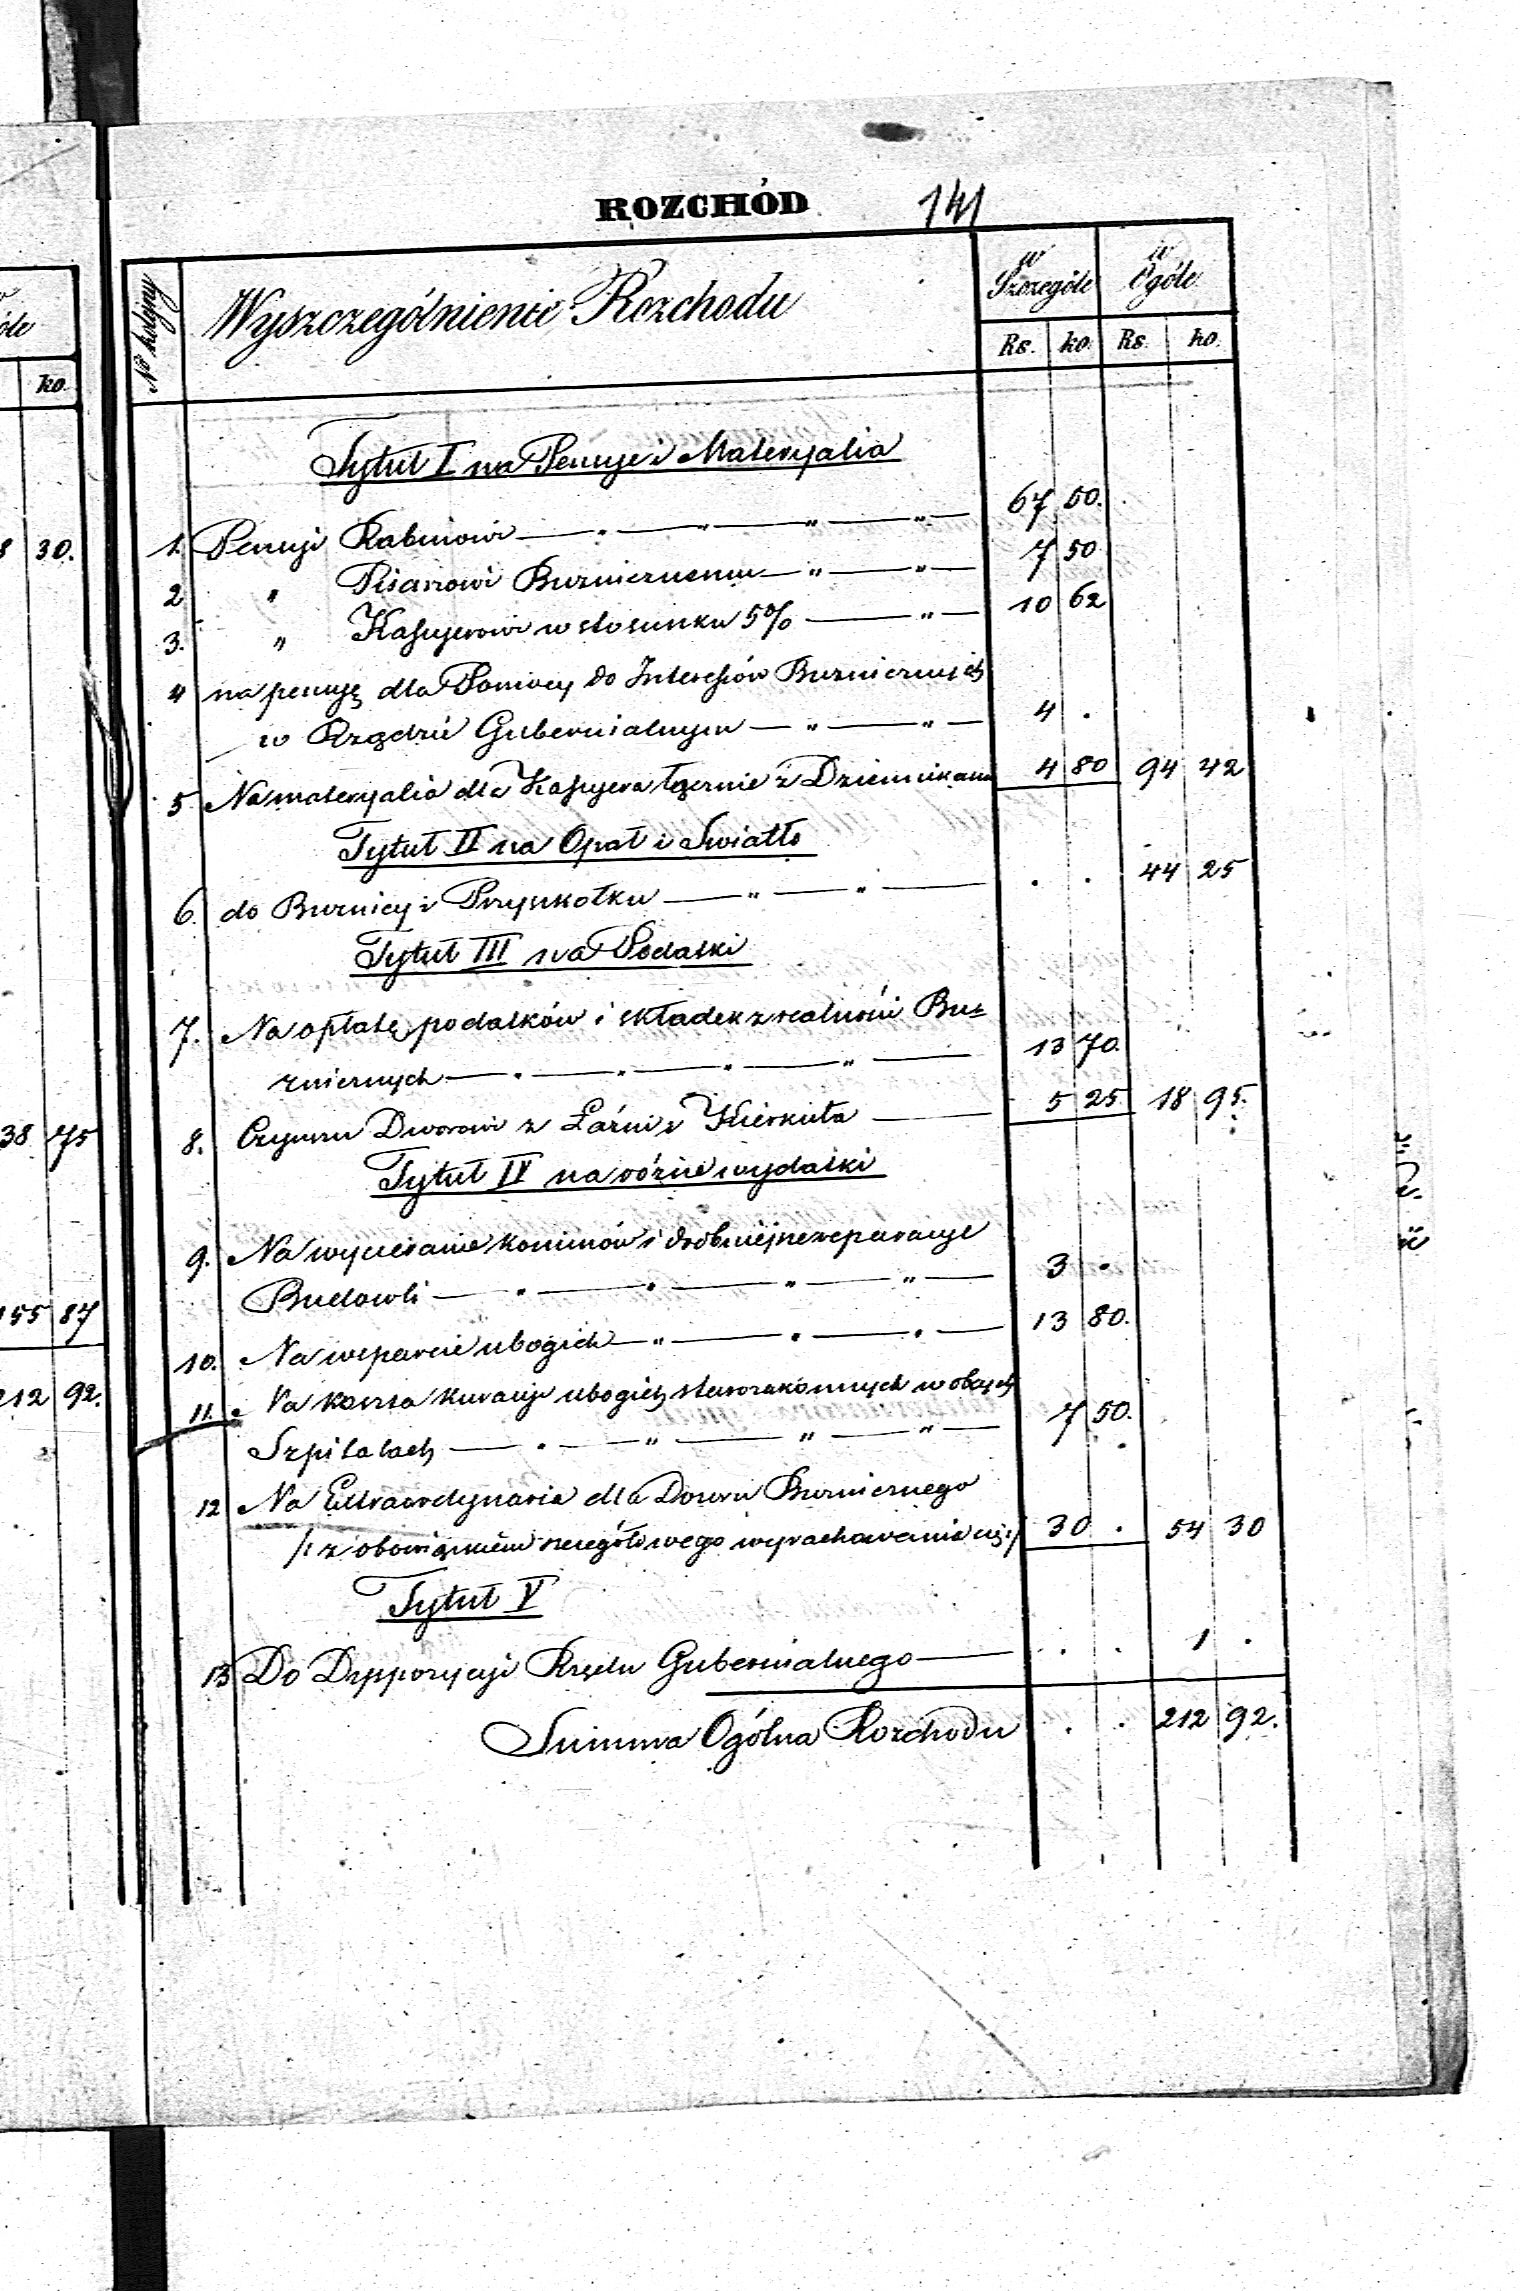 ROZCHÓD 141
No kolejny
Wyszczególnienie Rozchodu
w Szczególe
w Ogóle
Rs. ko. Rs. ko.
Tytuł I na Pensye i Materyalia
1. Pensyi Rabinowi — " — " — " — " — 67 50.
2 " Pisarzowi Bużnicznemu — " — " — 7 50
3. " Kassyerowi w stosunku 5% — " — 10 62
4 na pensyę dla Pomocy do Interessów Bużnicznych
w Rządzie Gubernialnym — " — " — 4 .
5 Na materyalia dla Kassyera łącznie z Dziennikami 4 80 94 42
Tytuł II na Opał i Swiatło
6. do Bużnicy i Przyszkołku — " — " — . . 44 25
Tytuł III na Podatki
7. Na opłatę podatków i składek z realności Bu-
żnicznych — " — " — " — " — 13 70.
8. Czynszu Dworowi z Łaźni i Kierkuta — 5 25. 18 95.
Tytuł IV na różne wydatki
9. Na wycieranie kominów i drobniejsze reparacye
Budowli — " — " — " — " — 3 .
10. Na wsparcie ubogich — " — " — " — 13 80.
11. Na koszta kuracyi ubogich starozakonnych w obcych
Szpitalach — " — " — " — " — 7 50.
12 Na Extraordynaria dla Dozoru Bużnicznego
/: z obowiązkiem szczegółowego wyrachowania się :/ 30 . 54 30
Tytuł V
13 Do Dyspozycyi Rządu Gubernialnego — . . 1 .
Summa Ogólna Rozchodu . . 212 92.
ko.
8 30.
38 75
155 87
212 92.